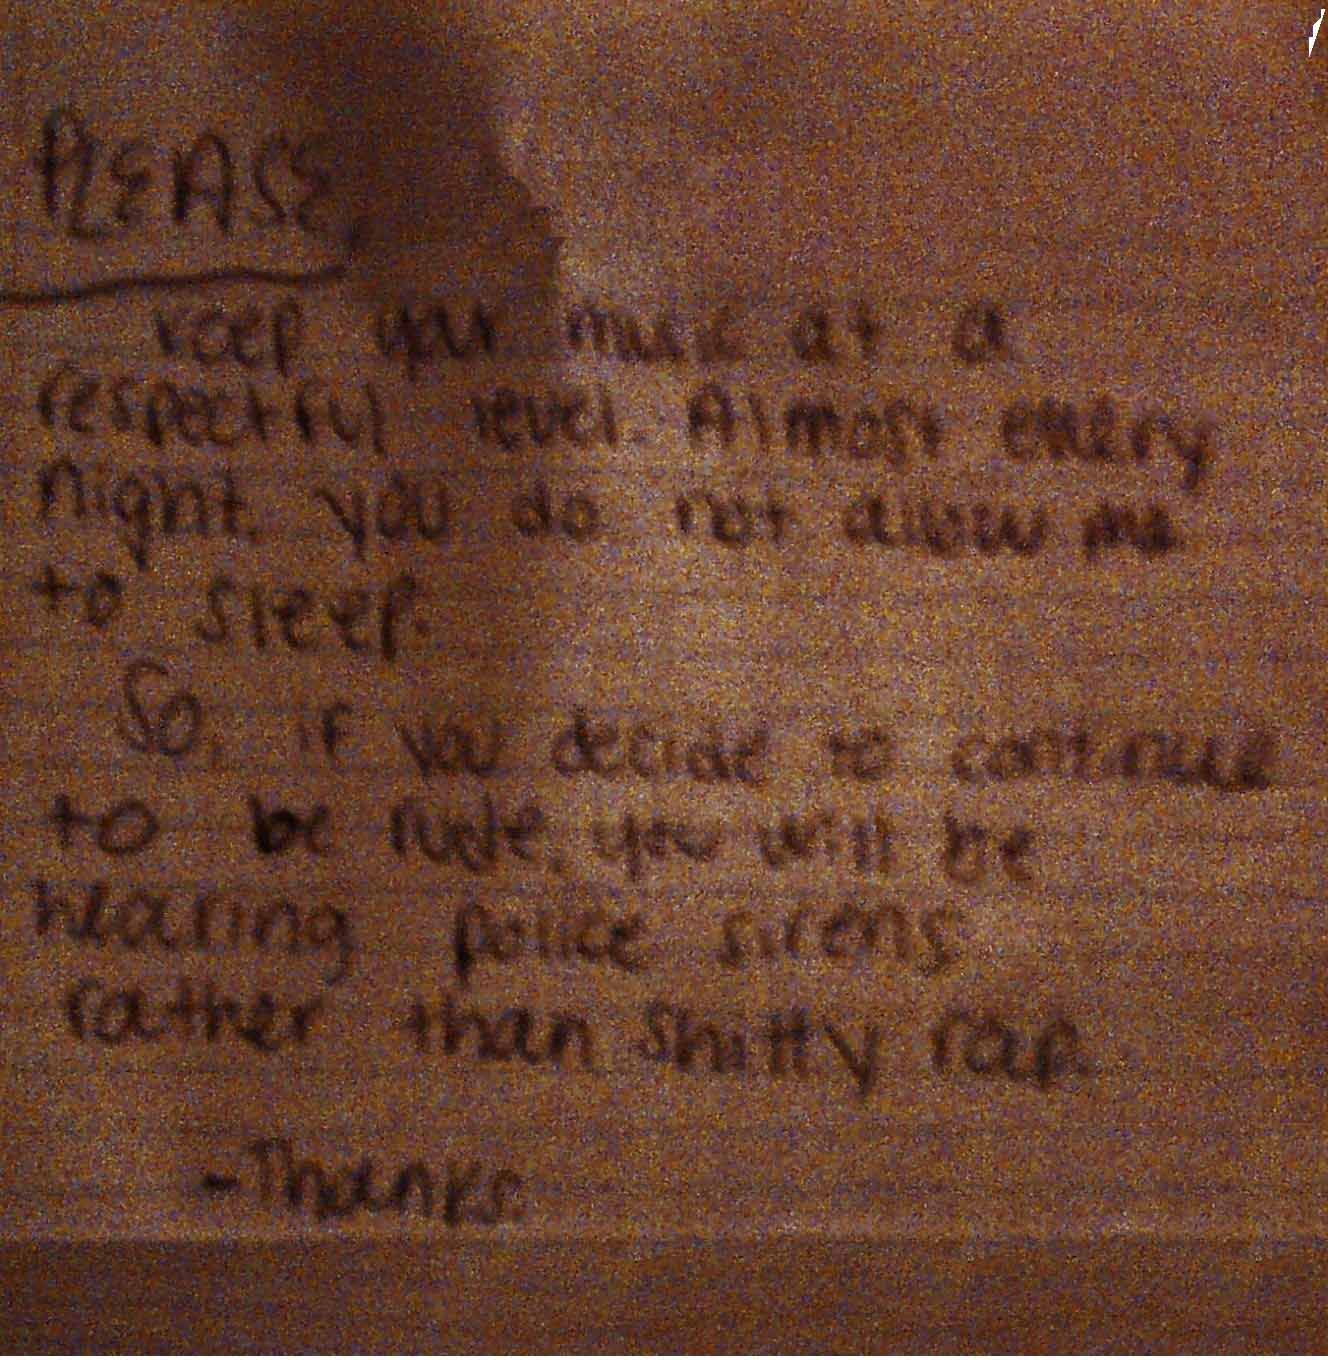 PLEASE,
keep your music at a
respectful level. Almost every
night you do not allow me
to sleep.
So, if you decide to continue
to be rude, you will be
hearing police sirens
rather than shitty rap.
-Thanks.